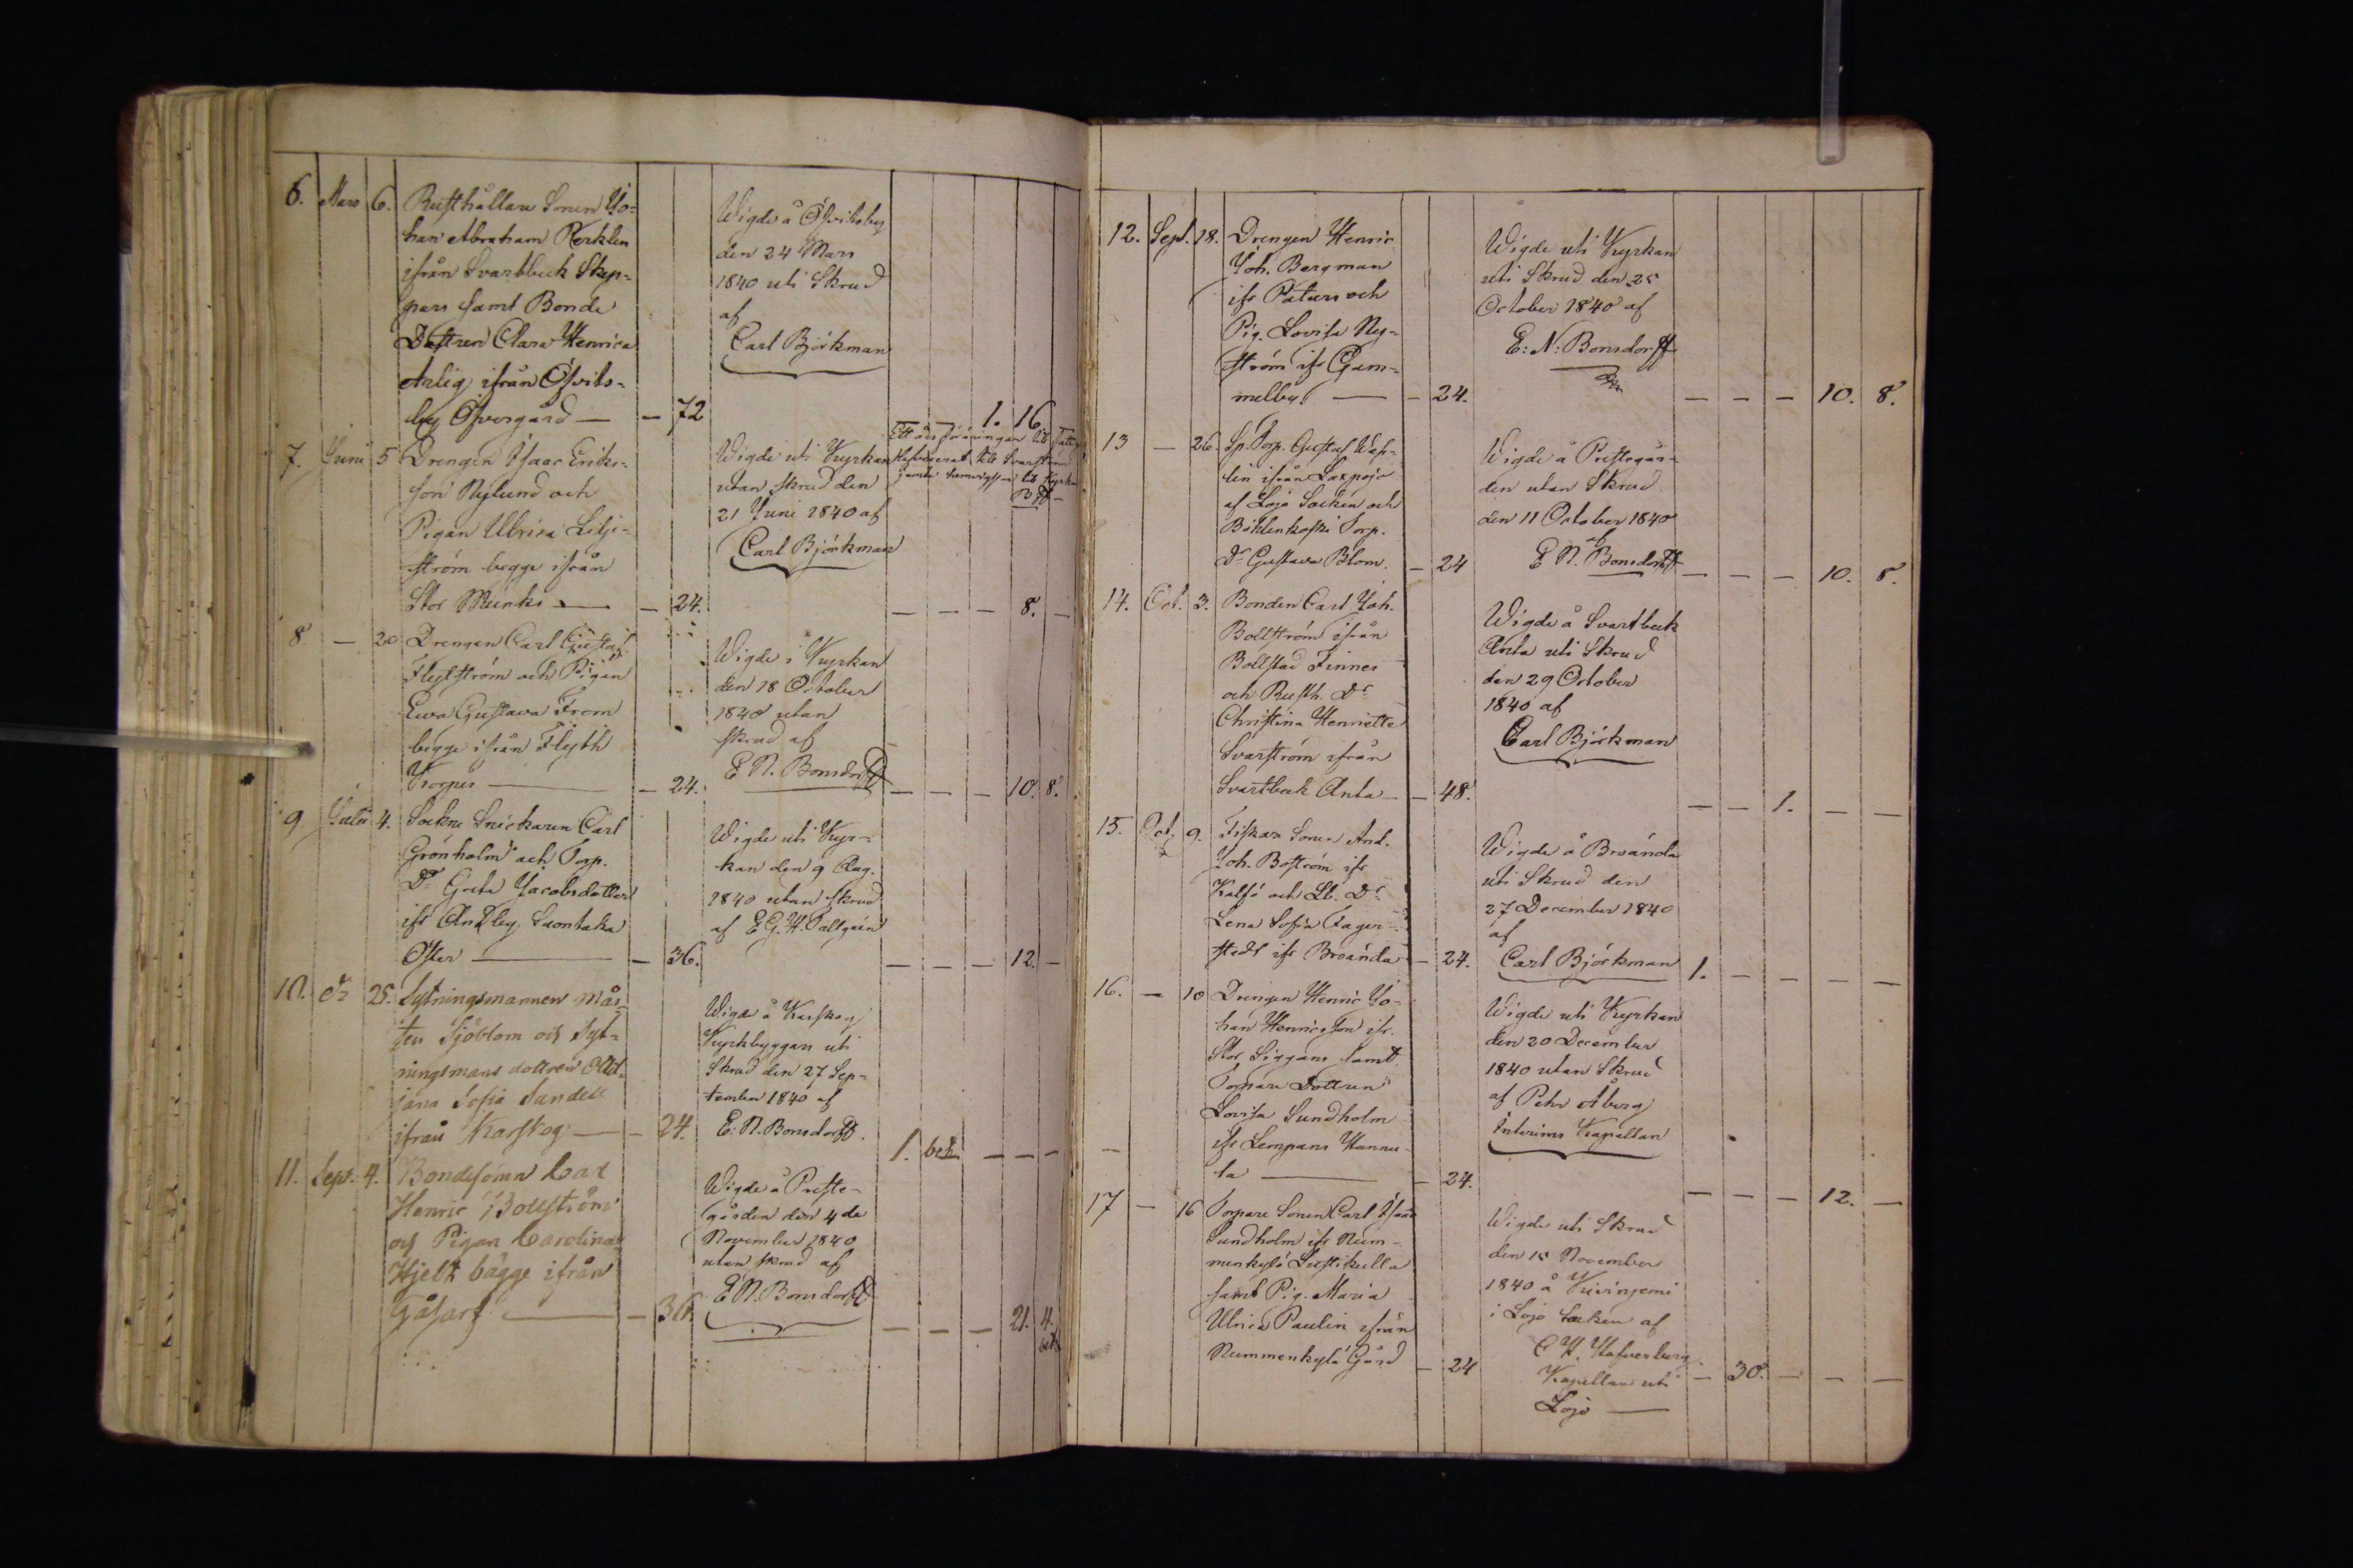 6. Mars 6. Rusthållare Sonen Jo-
han Abraham Rerklen
ifrån Svartbeck Skep-
pars samt Bonde
Dottren Clara Henrica
Arlig ifrån Öfvits-
by Öfvergård — — 72
Wigde å Öfvitsby
den 24 Mars
1840 uti Skrud
af
Carl Björkman
1. 16
7. Junii 5 Drengen Isaac Eriks-
son Nylund och
Pigan Ulrica Lilje-
ström begge ifrån
Stor — — 24.
Wigde uti Kyrkan
utan skrud den
21 Juni 1840 af
Carl Björkman
— — — 8. —
8. — 20 Drengen Carl Gustaf
Flytström och Pigan
Ewa Gustava From
begge ifrån Flyth
Korpus — — 24.
Wigde i Kyrkan
den 18 October
1840 utan
skrud af
E N. Bonsdorff
— — — 10. 8.
9. Julii 4. Sockne Snickaren Carl
Grönholm och Torp.
Dr Greta Jacobsdotter
ifr Ankby Saontaka
Öster — — 36.
Wigde uti Kyr-
kan den 9 Aug.
1840 utan skrud
af E G. H.
— — — 12. —
10. dº 25. Sytningsmannen Mår-
ten Sjöblom och Syt-
ningsmans dottren
Sofia Sandell
ifrån Karskog — — 24.
Wigde å Karskog
Kyrkbyggan uti
Skrud den 27 Sep-
tember 1840 af
E. N. Bonsdorff.
1. bet — — —
11. Sept. 4. Bondesonen Carl
Henric Bollström
och Pigan Carolina
Hjelt bägge ifrån
Gåsarf — — 36.
Wigde å Preste-
gården den 4de
November 1840
utan skrud af
E N. Bonsdorff
— — — 21. 4.
bet
12. Sept. 18. Drengen Henric
Joh. Bergman
ifr Paturs och
Pig. Lovisa Ny-
ström ifr Gam-
melby. — — 24.
Wigde uti Kyrkan
uti Skrud den 25
October 1840 af
E: N: Bonsdorff
— — — 10. 8.
13 — 26. Sp. Torp. Gustaf Waf-
lin ifrån Laxpojo
af Lojo Socken och
Torp.
Dr Gustava Blom. — 24
Wigde å Prestegår-
den utan Skrud
den 11 October 1840
af
E N. Bonsdorff
— — — 10. 8.
14. Oct. 3. Bonden Carl Joh.
Bollström ifrån
Bollstad Finnes
och Rusth. Dr
Christina Henriette
Svarström ifrån
Svartbeck Anta — — 48.
Wigde å Svartbeck
Anta uti Skrud
den 29 October
1840 af
Carl Björkman
— — 1. — —
15. Oct. 9. Fiskare Sonen And.
Joh. Boström ifr
Kalfö och Sb. Dr
Lena Sofia Fager-
stedt ifr Broända — 24.
Wigde å Broända
uti Skrud den
27 December 1840
af
Carl Björkman
1. — — — —
16. — 10 Drengen Henric Jo-
han Henricsson ifr.
Stor Siggans samt
Torpare Dottren
Lovisa Sundholm
ifr Lempans Hannu-
la — — 24.
Wigde uti Kyrkan
den 20 December
1840 utan Skrud
af Petr Åberg
Interims Kapellan
— — — 12. —
17 — 16 Torpare Sonen Carl Isaac
Sundholm ifr Num-
menkylä Lustikulla
samt Pig. Maria
Ulrica Paulin ifrån
Nummenkylä Gård — 24
Wigde uti Skrud
den 15 November
1840 å Kivinjemi
i Lojo Socken af
Kapellan uti
Lojo —
— 30. — — —